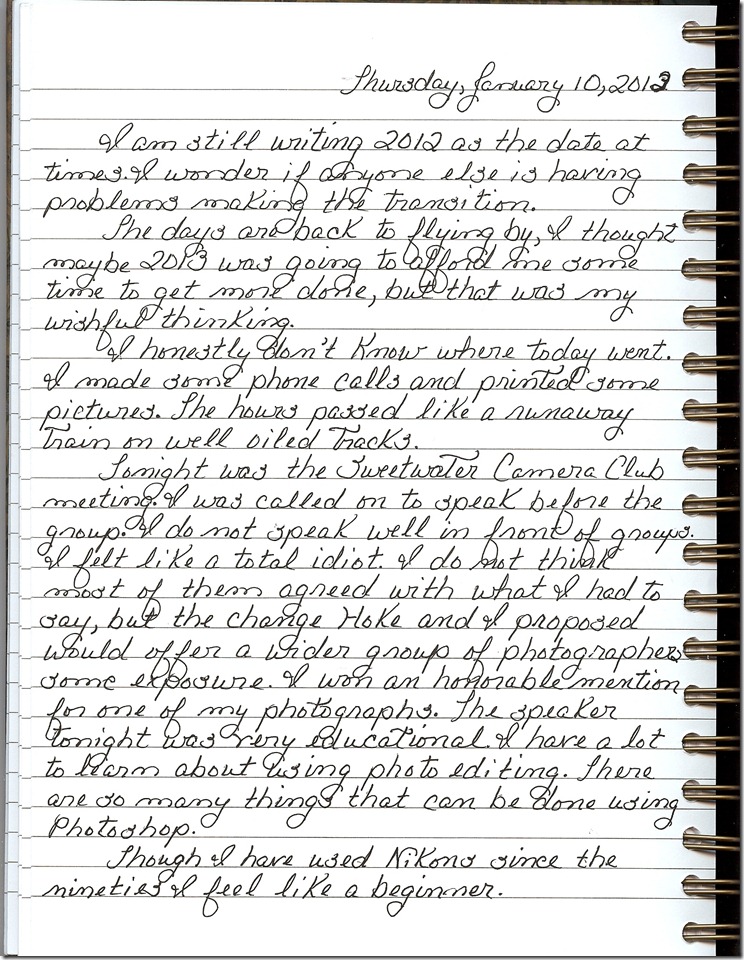 Thursday, January 10, 2013
I am still writing 2012 as the date at
times. I wonder if anyone else is having
problems making the transition.
The days are back to flying by, I thought
maybe 2013 was going to afford me some
time to get more done, but that was my
wishful thinking.
I honestly don't know where today went.
I made some phone calls and printed some
pictures. The hours passed like a runaway
train on well oiled tracks.
Tonight was the Sweetwater Camera Club
meeting. I was called on to speak before the
group. I do not speak well in front of groups.
I felt like a total idiot. I do not think
most of them agreed with what I had to
say, but the change Hoke and I proposed
would offer a wider group of photographers
some exposure. I won an honorable mention
for one of my photographs. The speaker
tonight was very educational. I have a lot
to learn about using photo editing. There
are so many things that can be done using
Photoshop.
Though I have used Nikons since the
nineties I feel like a beginner.